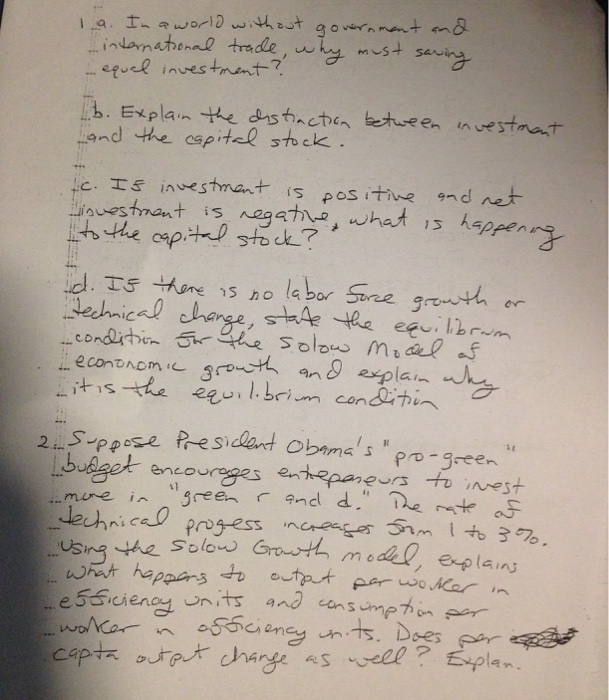 1 a. In a world without government and
international trade, why must saving
equel investment?
b. Explain the distinction between investment
and the capital stock.
c. If investment is positive and net
investment is negative, what is happening
to the capital stock?
d. If there is no labor force growth or
technical change, state the equilibrium
condition for the Solow Model of
econonomic growth and explain why
it is the equilibrium condition
2. Suppose President Obama's "pro-green"
budget encourages entrepeneurs to invest
more in "green r and d." The rate of
technical progess increases from 1 to 3%.
Using the Solow Growth model, explains
what happens to output per worker in
efficiency units and consumption per
worker in efficiency units. Does per
capta output change as well? Explan.